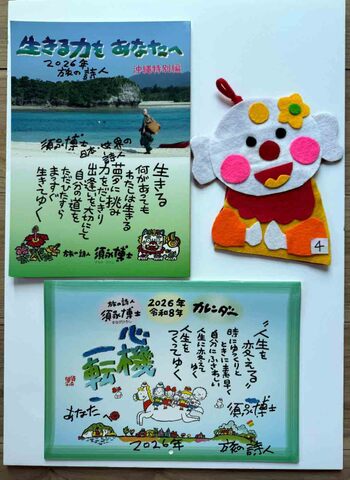 生きる力を あなたへ
2026年
旅の詩人
沖縄特別編
須永博士
日本 世界の
詩人
生きる
何があっても
わたしは生きる
夢に挑み
力をだしきり
出逢いを大切にして
自分の道を
ただひたすら
まっすぐ
生きてゆく
旅の詩人 須永博士
4
旅の詩人
須永博士
2026年
令和8年
カレンダー
心機
一転
あなたへ
"人生を
変える"
時にゆっくりと
ときに素早く
自分にふさわしい
人生に変えてゆく
人生を
つくってゆく
須永博士
2026年
旅の詩人